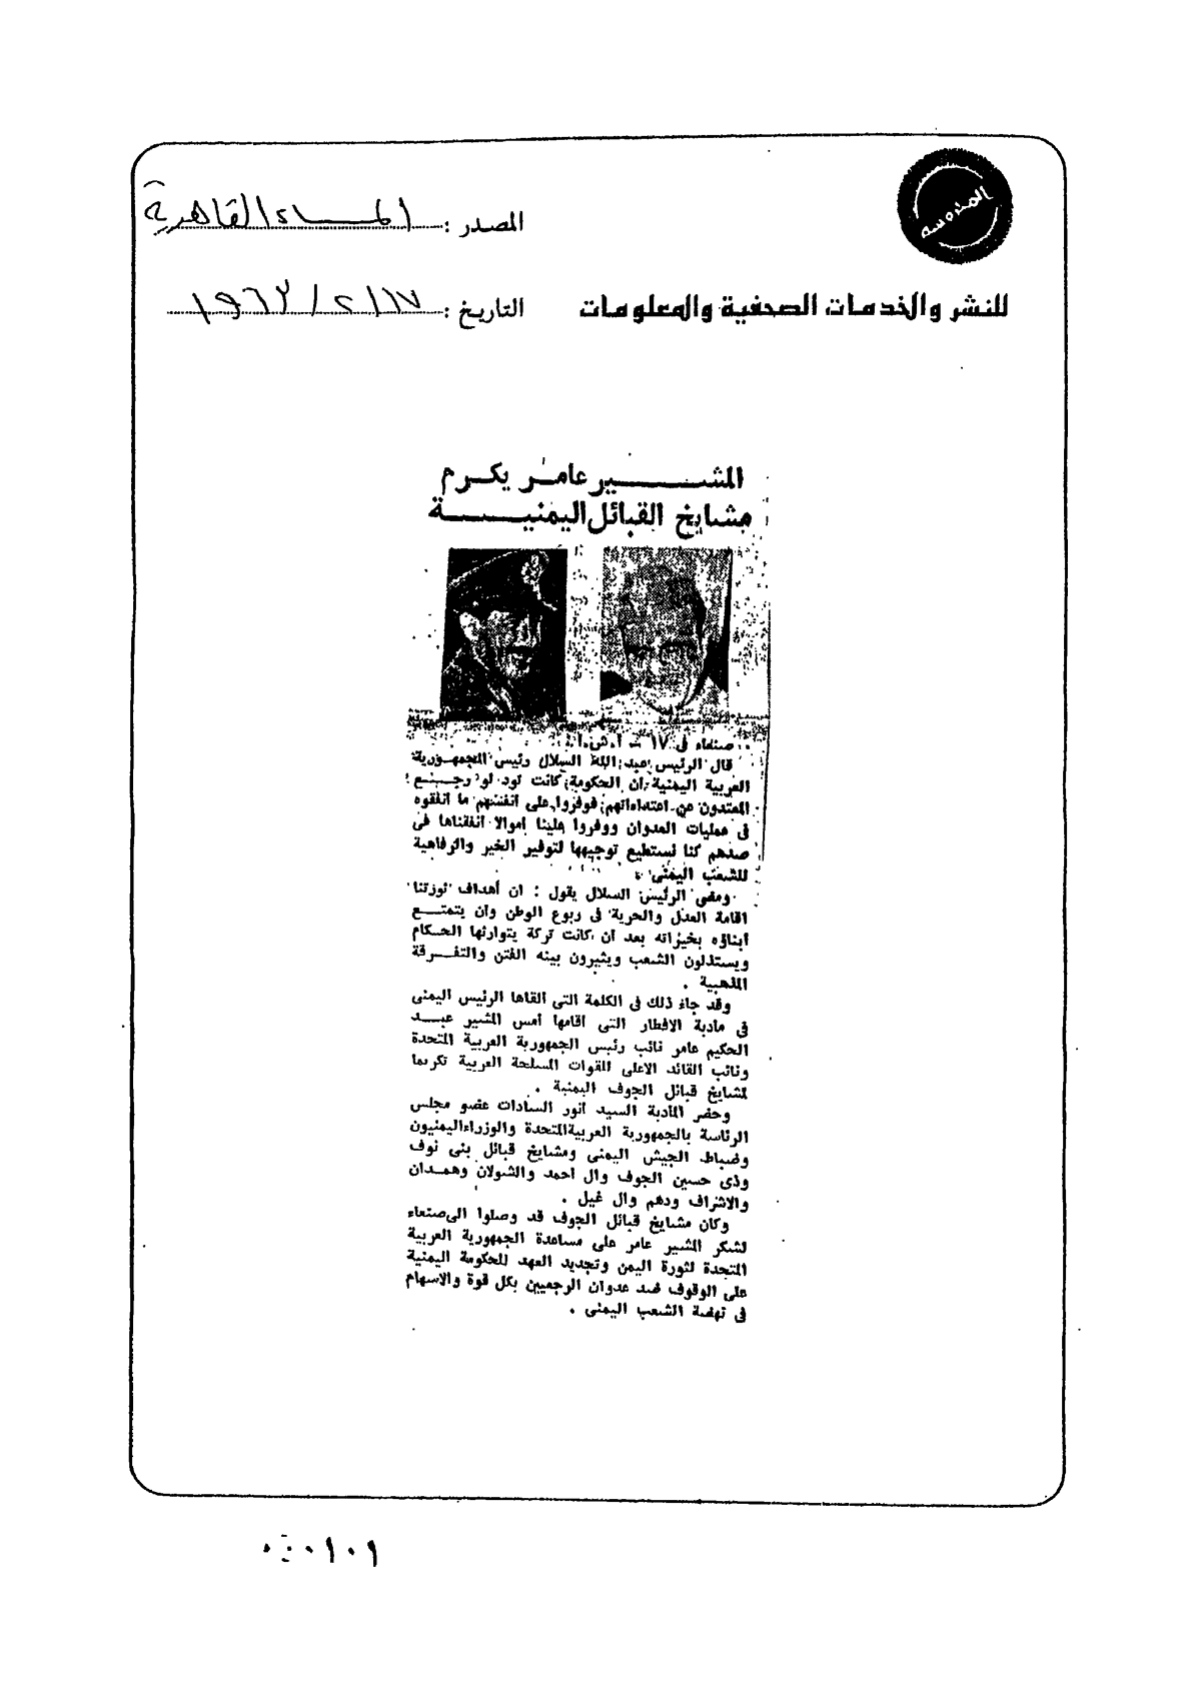 المحروسة
المصدر : المساء القاهرية
للنشر والخدمات الصحفية والمعلومات
التاريخ : ١٧/٢/١٩٦٣
المشير عامر يكرم
مشايخ القبائل اليمنية
صنعاء فى ١٧ - أ.ش.أ
قال الرئيس عبد الله السلال رئيس الجمهورية
العربية اليمنية أن الحكومة كانت تود لو رجع
المعتدون عن اعتداءاتهم فوفروا على أنفسهم ما أنفقوه
فى عمليات العدوان ووفروا علينا أموالا أنفقناها فى
صدهم كنا نستطيع توجيهها لتوفير الخير والرفاهية
للشعب اليمنى .
ومضى الرئيس السلال يقول : ان أهداف ثورتنا
اقامة العدل والحرية فى ربوع الوطن وأن يتمتع
أبناؤه بخيراته بعد أن كانت تركة يتوارثها الحكام
ويستذلون الشعب ويثيرون بينه الفتن والتفرقة
المذهبية .
وقد جاء ذلك فى الكلمة التى ألقاها الرئيس اليمنى
فى مأدبة الافطار التى أقامها أمس المشير عبد
الحكيم عامر نائب رئيس الجمهورية العربية المتحدة
ونائب القائد الاعلى للقوات المسلحة العربية تكريما
لمشايخ قبائل الجوف اليمنية .
وحضر المأدبة السيد أنور السادات عضو مجلس
الرئاسة بالجمهورية العربية المتحدة والوزراء اليمنيون
وضباط الجيش اليمنى ومشايخ قبائل بنى نوف
وذى حسين الجوف وال احمد والشولان وهمدان
والاشراف ودهم وال غيل .
وكان مشايخ قبائل الجوف قد وصلوا الى صنعاء
لشكر المشير عامر على مساعدة الجمهورية العربية
المتحدة لثورة اليمن وتجديد العهد للحكومة اليمنية
على الوقوف ضد عدوان الرجعيين بكل قوة والاسهام
فى نهضة الشعب اليمنى .